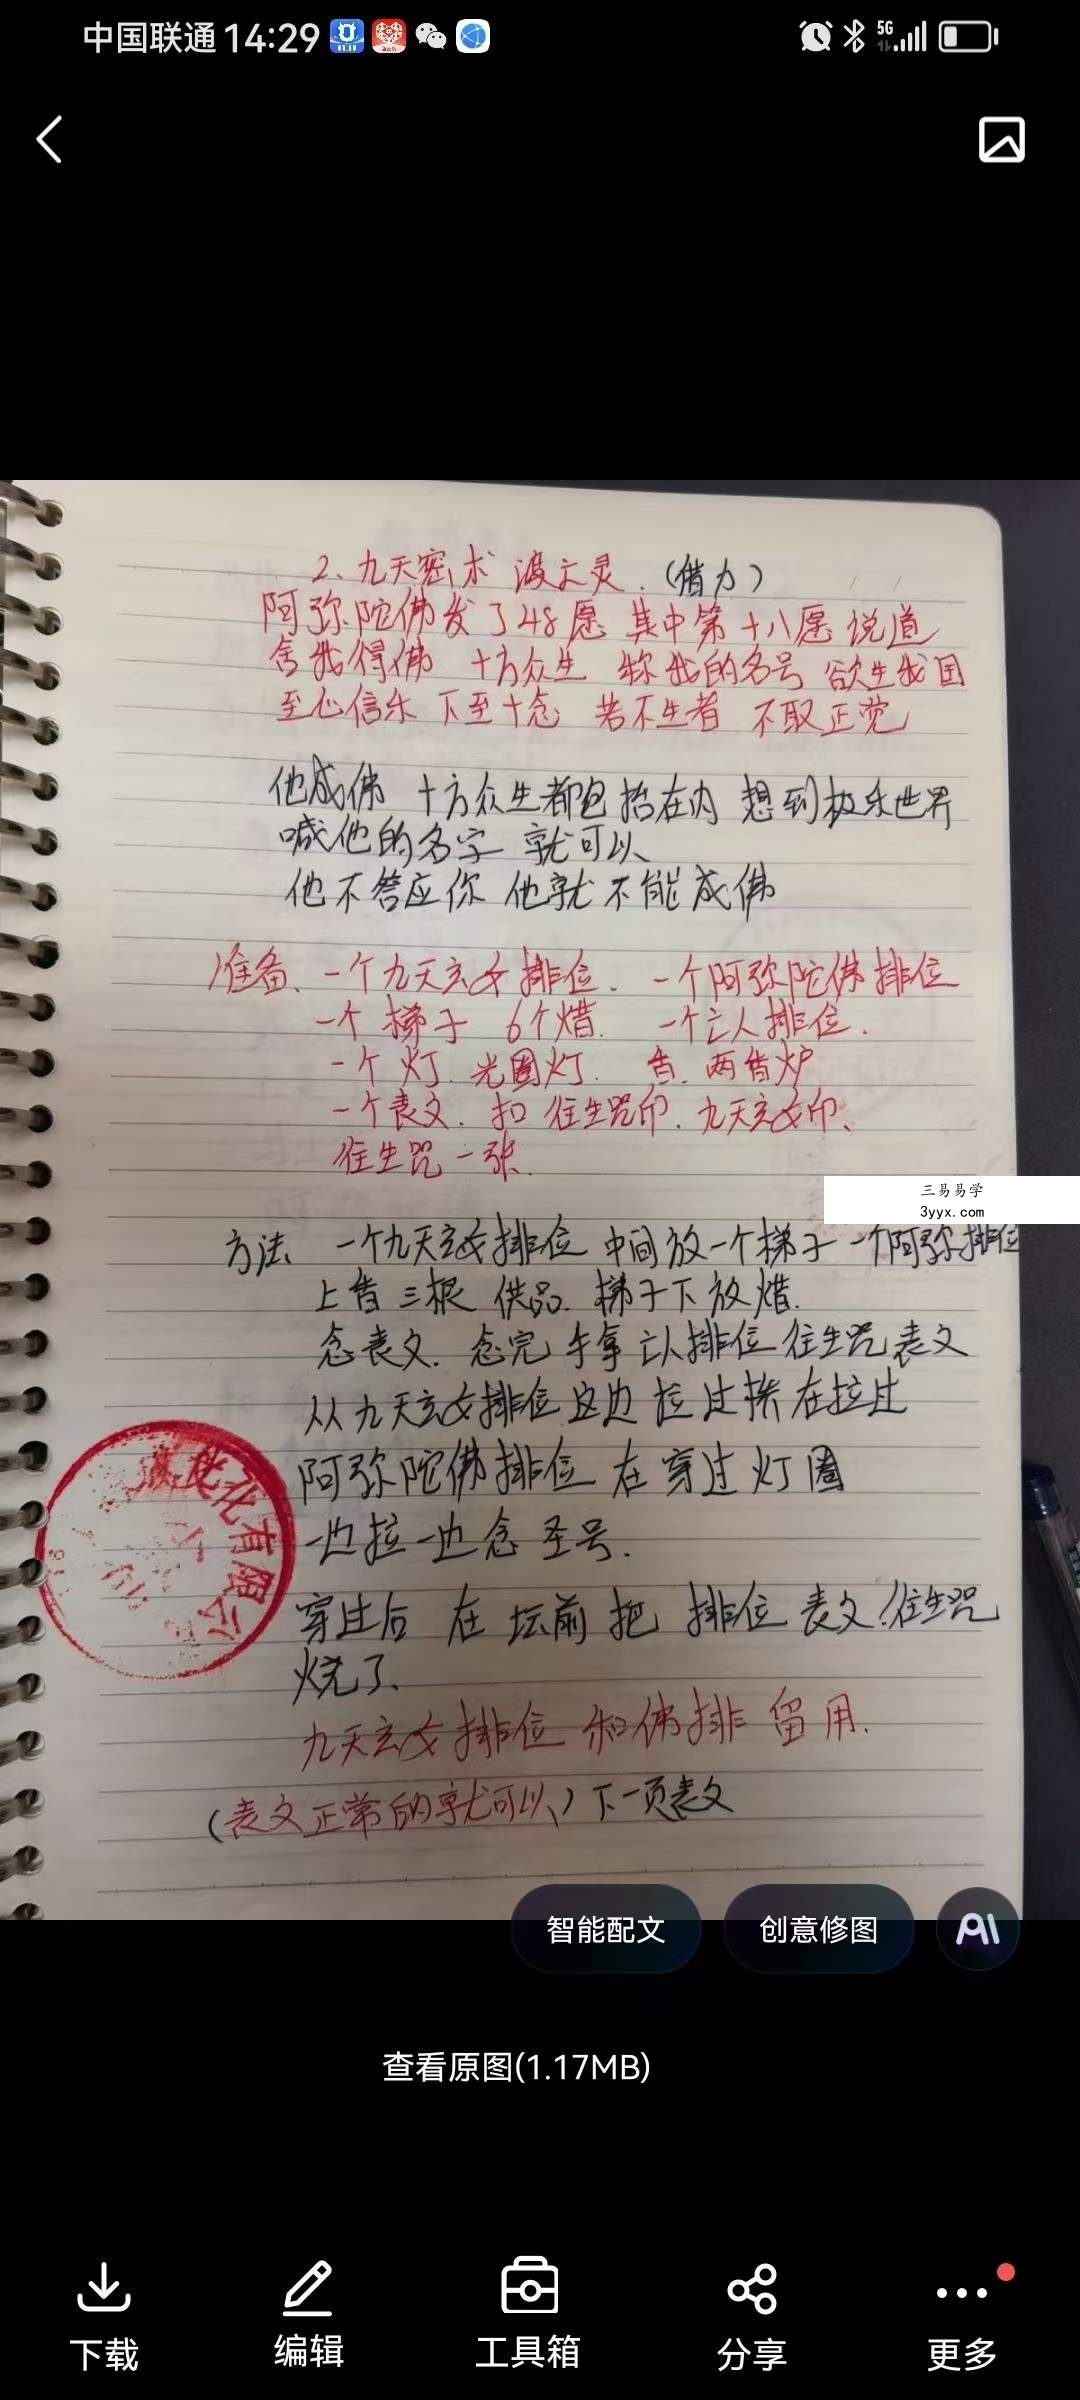 中国联通 14:29
5G
2、九天密术 渡亡灵.(借力)
阿弥陀佛发了48愿 其中第十八愿说道
舍我得佛 十方众生 称我的名号 欲生我国
至心信乐 下至十念 若不生者 不取正觉
他成佛 十方众生都包括在内 想到极乐世界
喊他的名字 就可以
他不答应你 他就不能成佛
准备、一个九天玄女排位. 一个阿弥陀佛排位
一个梯子 6个烛. 一个亡人排位.
一个灯. 光圈灯. 香. 两香炉
一个表文. 扣 往生咒印. 九天玄女印、
往生咒一张.
三易易学
3yyx.com
方法、一个九天玄女排位 中间放一个梯子 一个阿弥排位
上香三根 供品. 梯子下放烛.
念表文. 念完手拿亡人排位往生咒表文
从九天玄女排位这边拉过 在拉过
阿弥陀佛排位 在穿过灯圈
一边拉一边念圣号.
穿过后 在坛前把 排位 表文.往生咒
烧了.
九天玄女排位 和佛排 留用.
(表文正常的就可以、)下一页表文
化有限公
智能配文 创意修图 AI
查看原图(1.17MB)
下载 编辑 工具箱 分享 更多